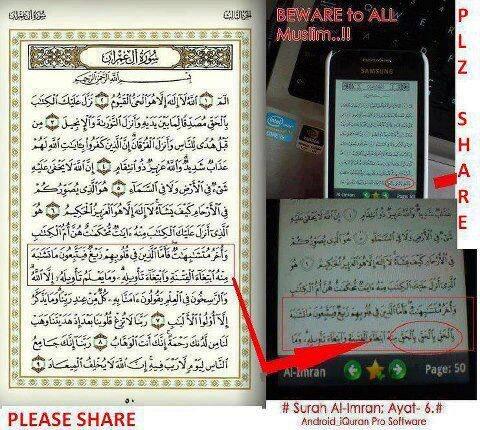 الجزء الثالث
سورة آل عمران
سُورَةُ آلِ عِمْرَانَ
بِسْمِ اللَّهِ الرَّحْمَٰنِ الرَّحِيمِ
الٓمٓ ١ ٱللَّهُ لَآ إِلَٰهَ إِلَّا هُوَ ٱلْحَىُّ ٱلْقَيُّومُ ٢ نَزَّلَ عَلَيْكَ ٱلْكِتَٰبَ
بِٱلْحَقِّ مُصَدِّقًا لِّمَا بَيْنَ يَدَيْهِ وَأَنزَلَ ٱلتَّوْرَىٰةَ وَٱلْإِنجِيلَ ٣ مِن
قَبْلُ هُدًى لِّلنَّاسِ وَأَنزَلَ ٱلْفُرْقَانَ إِنَّ ٱلَّذِينَ كَفَرُوا۟ بِـَٔايَٰتِ ٱللَّهِ لَهُمْ
عَذَابٌ شَدِيدٌ وَٱللَّهُ عَزِيزٌ ذُو ٱنتِقَامٍ ٤ إِنَّ ٱللَّهَ لَا يَخْفَىٰ عَلَيْهِ
شَىْءٌ فِى ٱلْأَرْضِ وَلَا فِى ٱلسَّمَآءِ ٥ هُوَ ٱلَّذِى يُصَوِّرُكُمْ
فِى ٱلْأَرْحَامِ كَيْفَ يَشَآءُ لَآ إِلَٰهَ إِلَّا هُوَ ٱلْعَزِيزُ ٱلْحَكِيمُ ٦
هُوَ ٱلَّذِىٓ أَنزَلَ عَلَيْكَ ٱلْكِتَٰبَ مِنْهُ ءَايَٰتٌ مُّحْكَمَٰتٌ هُنَّ أُمُّ ٱلْكِتَٰبِ
وَأُخَرُ مُتَشَٰبِهَٰتٌ فَأَمَّا ٱلَّذِينَ فِى قُلُوبِهِمْ زَيْغٌ فَيَتَّبِعُونَ مَا تَشَٰبَهَ
مِنْهُ ٱبْتِغَآءَ ٱلْفِتْنَةِ وَٱبْتِغَآءَ تَأْوِيلِهِۦ وَمَا يَعْلَمُ تَأْوِيلَهُۥٓ إِلَّا ٱللَّهُ
وَٱلرَّٰسِخُونَ فِى ٱلْعِلْمِ يَقُولُونَ ءَامَنَّا بِهِۦ كُلٌّ مِّنْ عِندِ رَبِّنَا وَمَا يَذَّكَّرُ
إِلَّآ أُو۟لُوا۟ ٱلْأَلْبَٰبِ ٧ رَبَّنَا لَا تُزِغْ قُلُوبَنَا بَعْدَ إِذْ هَدَيْتَنَا وَهَبْ
لَنَا مِن لَّدُنكَ رَحْمَةً إِنَّكَ أَنتَ ٱلْوَهَّابُ ٨ رَبَّنَآ إِنَّكَ جَامِعُ
ٱلنَّاسِ لِيَوْمٍ لَّا رَيْبَ فِيهِ إِنَّ ٱللَّهَ لَا يُخْلِفُ ٱلْمِيعَادَ ٩
٥٠
PLEASE SHARE
BEWARE to ALL
Muslim..!!
SAMSUNG
PLZ SHARE
وَأُخَرُ مُتَشَٰبِهَٰتٌ فَأَمَّا ٱلَّذِينَ فِى قُلُوبِهِمْ زَيْغٌ فَيَتَّبِعُونَ مَا تَشَٰبَهَ
Al-Imran
Page: 50
# Surah Al-Imran; Ayat- 6.#
Android iQuran Pro Software